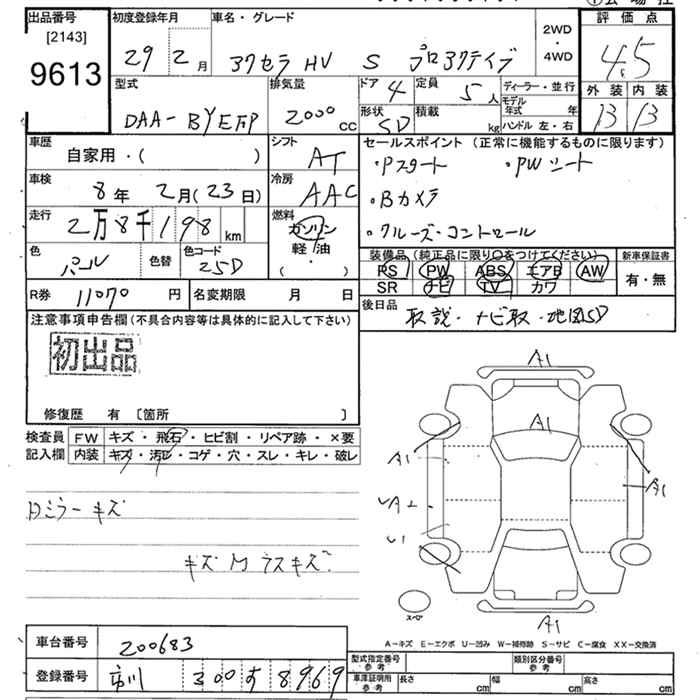 出品番号 初度登録年月 車名・グレード ①会場社
[2143] 2WD・4WD 評価点
9613 29年 2月 アクセラ HV S プロアクティブ 4.5
型式 排気量 ドア 4 定員 5人 ディーラー・並行 外装 内装
DAA-BYEFP 2000cc 形状 SD 積載 kg モデル年式 年 B B
ハンドル 左・右
車歴 シフト セールスポイント (正常に機能するものに限ります)
自家用・( ) AT ・Pスタート ・PWシート
車検 冷房 ・Bカメラ
8年 2月(23日) AAC
走行 燃料 ・クルーズ・コントロール
2万8千198km ガソリン
軽・油
・( )
色 色替 色コード
パール 25D
装備品(純正品に限り○をつけてください) 新車保証書
PS PW ABS エアB AW 有・無
SR ナビ TV カワ
R券 11070円 名変期限 月 日 後日品
取説・ナビ取・地図SD
注意事項申告欄(不具合内容等は具体的に記入して下さい)
初出品
修復歴 有 [箇所 ]
検査員 FW キズ・飛石・ヒビ割・リペア跡・×要
記入欄 内装 キズ・汚レ・コゲ・穴・スレ・キレ・破レ
A1
A1
A1
A1
A1
スペア
Dミラーキズ
キズ M ラスキズ
A-キズ E-エクボ U-凹み W-補修跡 S-サビ C-腐食 XX-交換済
車台番号 200683
登録番号 市川 300 す 8969
型式指定番号 参考 類別区分番号 参考
車庫証明用 参考 長さ cm 幅 cm 高さ cm